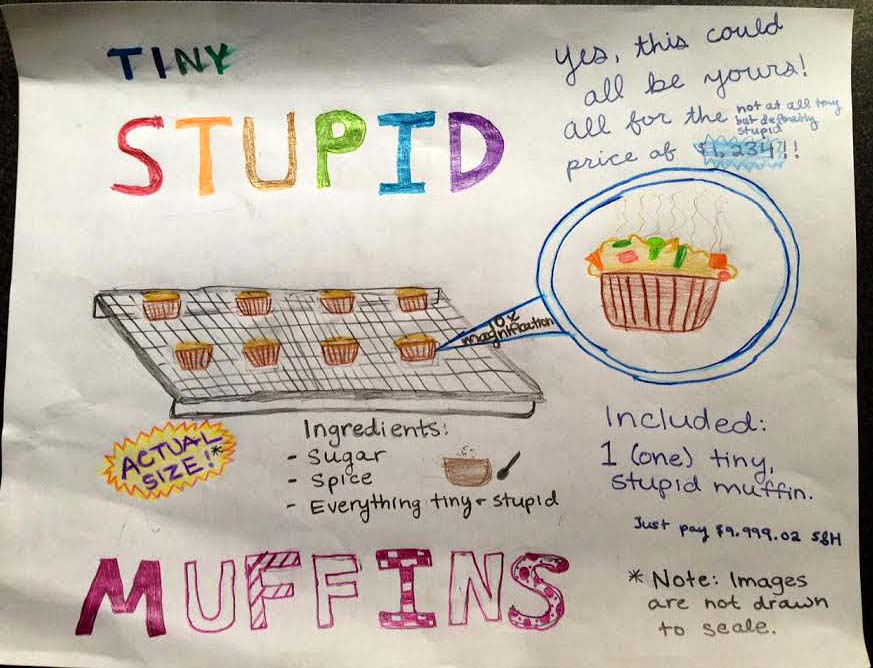 TINY
STUPID
Yes, this could
all be yours!
all for the not at all tiny
but definately
stupid
price of $1,234!!
10x
magnification
ACTUAL
SIZE!*
Ingredients:
- Sugar
- Spice
- Everything tiny + stupid
Included:
1 (one) tiny,
stupid muffin.
Just pay $9,999.02 S&H
MUFFINS
* Note: Images
are not drawn
to scale.